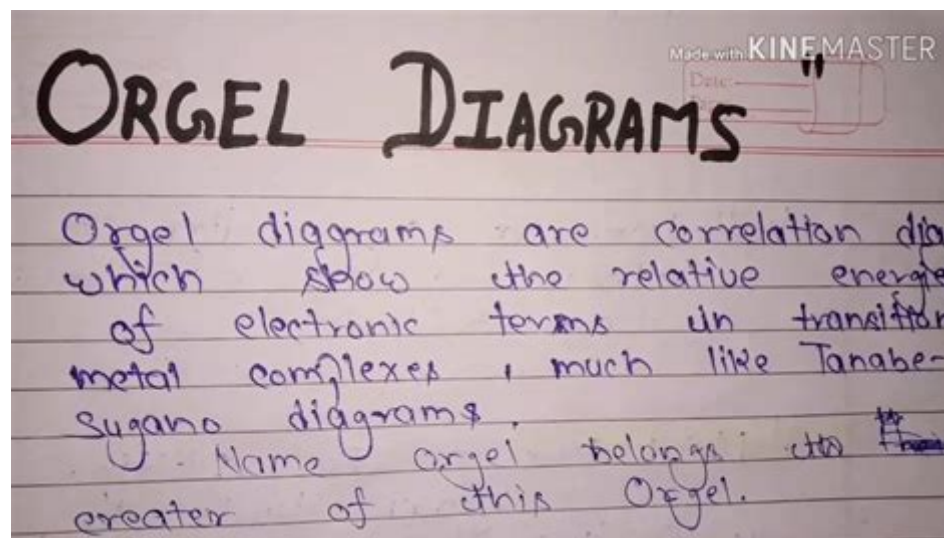 Made with KINEMASTER
ORGEL DIAGRAMS"
Date:
Orgel diagrams are correlation dia
which show the relative energie
of electronic terms in transition
metal complexes, much like Tanabe-
Sugano diagrams.
Name orgel belongs to
creater of this Orgel.